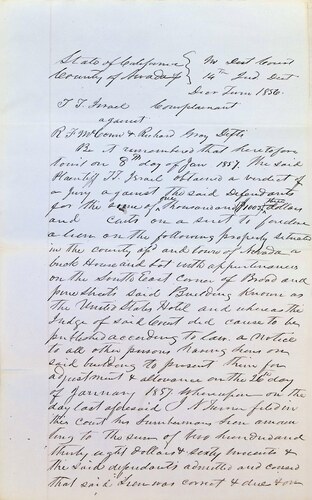 State of California } In Dist Court
County of Nevada } 14th Jud Dist
Decr Term 1856
T. T. Israel Complainant
against
R F McConn & Richard Gray Defts
Be it remembered that heretofore
towit on 8th day of Jan 1857. The said
Plaintiff T. Israel obtained a verdict of
a jury against the said Defendants
for the sum of Thousand dollars
and costs on a suit to foreclose
a lien on the following property situated
in the county of and town of Nevada a
brick House and lot with appurtenances
on the South East Corner of Broad and
pine Streets said Building known as
the United States Hotel and whereas the
Judge of said Court did cause to be
published according to Law a Notice
to all other persons having liens on
said building to present them for
adjustment & allowance on the 26th day
of January 1857 Whereupon on
the day last aforesaid filed in
this court his lien amoun
ting to the sum of two hundred and
thirty eight dollars & sixty cents &
the said defendants admitted and consed
that said Lien was correct & due & on